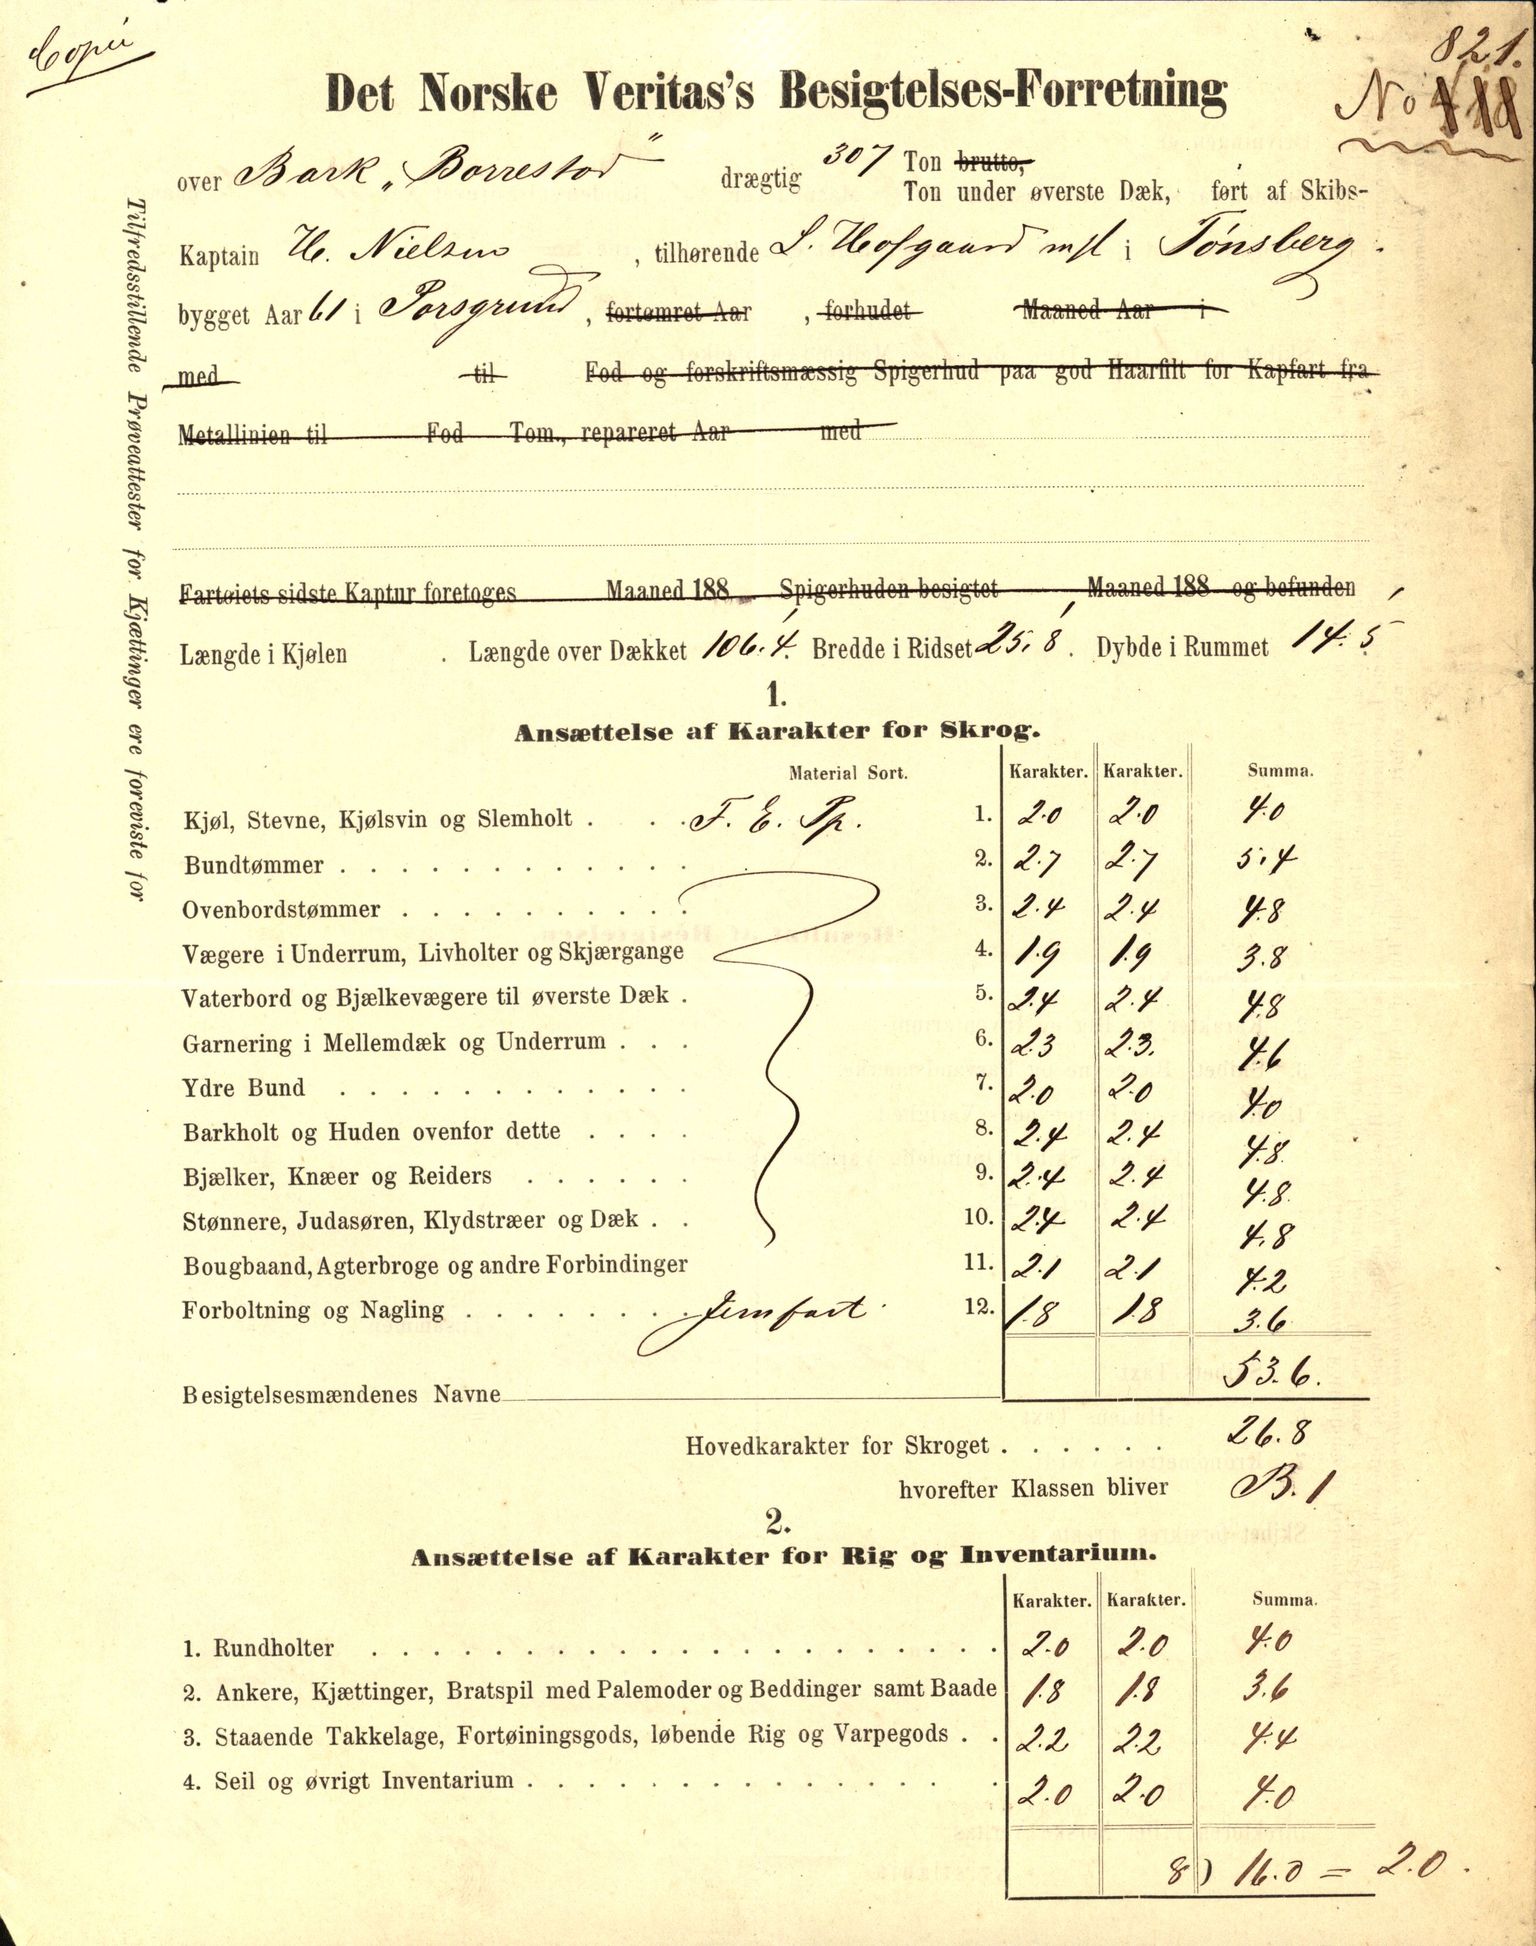 Copie
821.
No
Det Norske Veritas's Besigtelses-Forretning
over Bark „Borrestad" drægtig 307 Ton brutto,
Ton under øverste Dæk, ført af Skibs-
Kaptain H. Nielsen , tilhørende L. Hofgaard mfl i Tønsberg.
bygget Aar 61 i Porsgrund, fortømret Aar , forhudet Maaned Aar i
med til Fod og forskriftsmæssig Spigerhud paa god Haarfilt for Kapfart fra
Metallinien til Fod Tom., repareret Aar med
Fartøiets sidste Kaptur foretoges Maaned 188 Spigerhuden besigtet Maaned 188 og befunden
Længde i Kjølen . Længde over Dækket 106.'4. Bredde i Ridset 25.'8. Dybde i Rummet 14.'5
Tilfredsstillende Prøveattester for Kjættinger ere foreviste for
1.
Ansættelse af Karakter for Skrog.
Material Sort. Karakter. Karakter. Summa.
Kjøl, Stevne, Kjølsvin og Slemholt . . . F. E. Pp. 1. 2.0 2.0 4.0
Bundtømmer . . . . . . . . . . . . 2. 2.7 2.7 5.4
Ovenbordstømmer . . . . . . . . . . 3. 2.4 2.4 4.8
Vægere i Underrum, Livholter og Skjærgange 4. 1.9 1.9 3.8
Vaterbord og Bjælkevægere til øverste Dæk . 5. 2.4 2.4 4.8
Garnering i Mellemdæk og Underrum . . . 6. 2.3 2.3. 4.6
Ydre Bund . . . . . . . . . . . . 7. 2.0 2.0 4.0
Barkholt og Huden ovenfor dette . . . . 8. 2.4 2.4 4.8.
Bjælker, Knæer og Reiders . . . . . . 9. 2.4 2.4 4.8.
Stønnere, Judasøren, Klydstræer og Dæk . . 10. 2.4 2.4 4.8
Bougbaand, Agterbroge og andre Forbindinger 11. 2.1 2.1 4.2
Forboltning og Nagling . . . . . . . Jernfast 12. 1.8 1.8 3.6
53.6.
Besigtelsesmændenes Navne
Hovedkarakter for Skroget . . . . . . 26.8
hvorefter Klassen bliver B.1
2.
Ansættelse af Karakter for Rig og Inventarium.
Karakter. Karakter. Summa.
1. Rundholter . . . . . . . . . . . . . . . . . . . . . 2.0 2.0 4.0
2. Ankere, Kjættinger, Bratspil med Palemoder og Beddinger samt Baade 1.8 1.8 3.6
3. Staaende Takkelage, Fortøiningsgods, løbende Rig og Varpegods . . 2.2 2.2 4.4
4. Seil og øvrigt Inventarium . . . . . . . . . . . . . . . 2.0 2.0 4.0
8) 16.0 = 2.0.